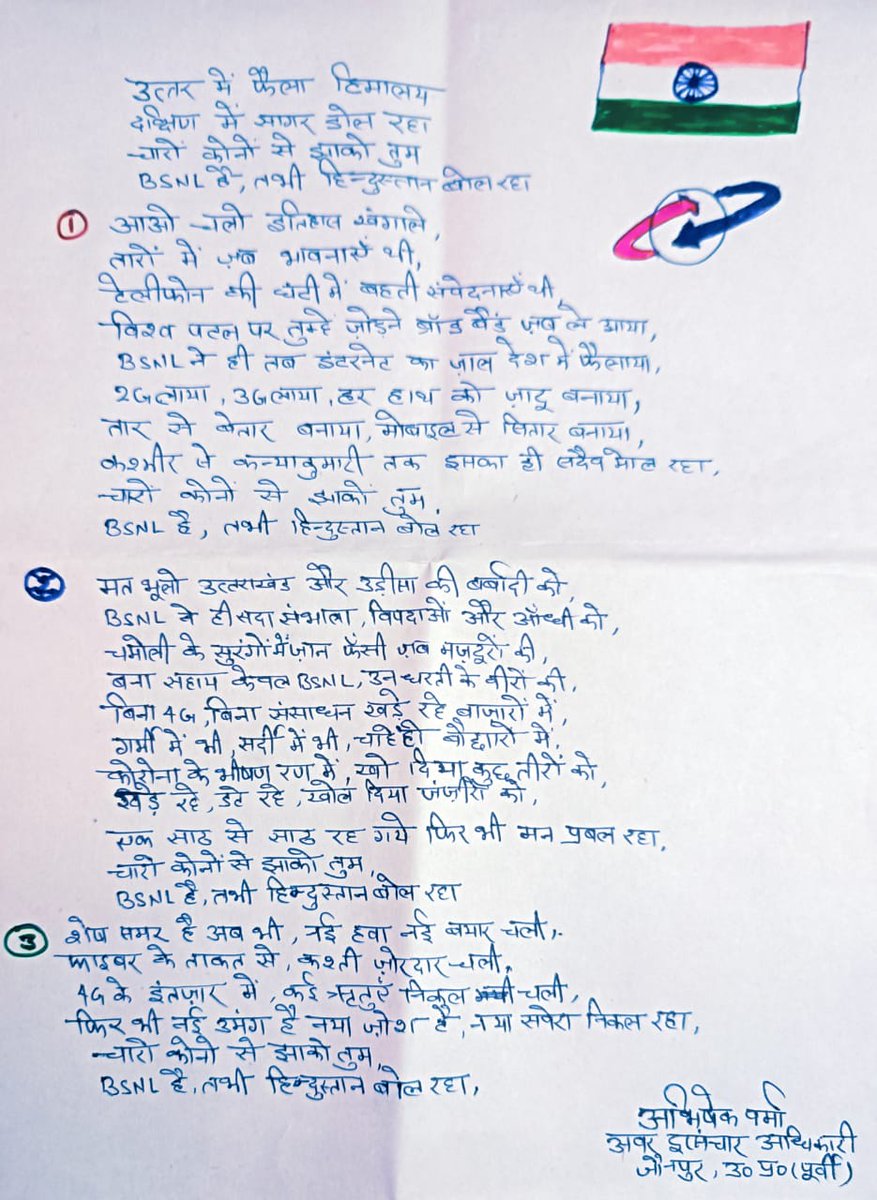 उत्तर में फैला हिमालय
दक्षिण में सागर डोल रहा
चारों कोनों से झाको तुम
BSNL है, तभी हिन्दुस्तान बोल रहा
① आओ चलो इतिहास खंगाले,
तारों में ज़ब भावनाएँ थी,
टेलीफोन की घंटी में बहती संवेदनाएँ थी,
विश्व पटल पर तुम्हे ज़ोड़ने ब्रॉड बैंड ज़ब ले आया,
BSNL ने ही तब इंटरनेट का ज़ाल देश में फैलाया,
2G लाया, 3G लाया, हर हाथ को ज़ादू बनाया,
तार से बेतार बनाया, मोबाइल से सितार बनाया,
कश्मीर से कन्याकुमारी तक इसका ही सदैव मोल रहा,
चारों कोनों से झाकों तुम,
BSNL है, तभी हिन्दुस्तान बोल रहा
② मत भूलो उत्तराखंड और उड़ीसा की बर्बादी को,
BSNL ने ही सदा संभाला, विपदाओं और आँधी को,
चमोली के सुरंगों में ज़ान फँसी ज़ब मज़दूरों की,
बना सहाय केवल BSNL, उन धरती के वीरों की,
बिना 4G, बिना संसाधन खड़े रहे बाज़ारों में,
गर्मी में भी, सर्दी में भी, चाहे हो बौछारों में,
कोरोना के भीषण रण में, खो दिया कुछ तीरों को,
खड़े रहे, डटे रहे, खोल दिया जंज़ीरों को,
एक साठ से साठ रह गये फिर भी मन प्रबल रहा,
चारो कोनों से झाको तुम,
BSNL है, तभी हिन्दुस्तान बोल रहा
③ शेष समर है अब भी, नई हवा नई बयार चली,
फाइबर के ताकत से, कश्ती ज़ोरदार चली,
4G के इंतज़ार में, कई ऋतुएँ निकल चली,
फिर भी नई उमंग है नया ज़ोश है, नया सवेरा निकल रहा,
चारो कोनो से झाको तुम,
BSNL है, तभी हिन्दुस्तान बोल रहा,
अभिषेक वर्मा
अवर दूरसंचार अधिकारी
जौनपुर, उ० प्र० (पूर्वी)